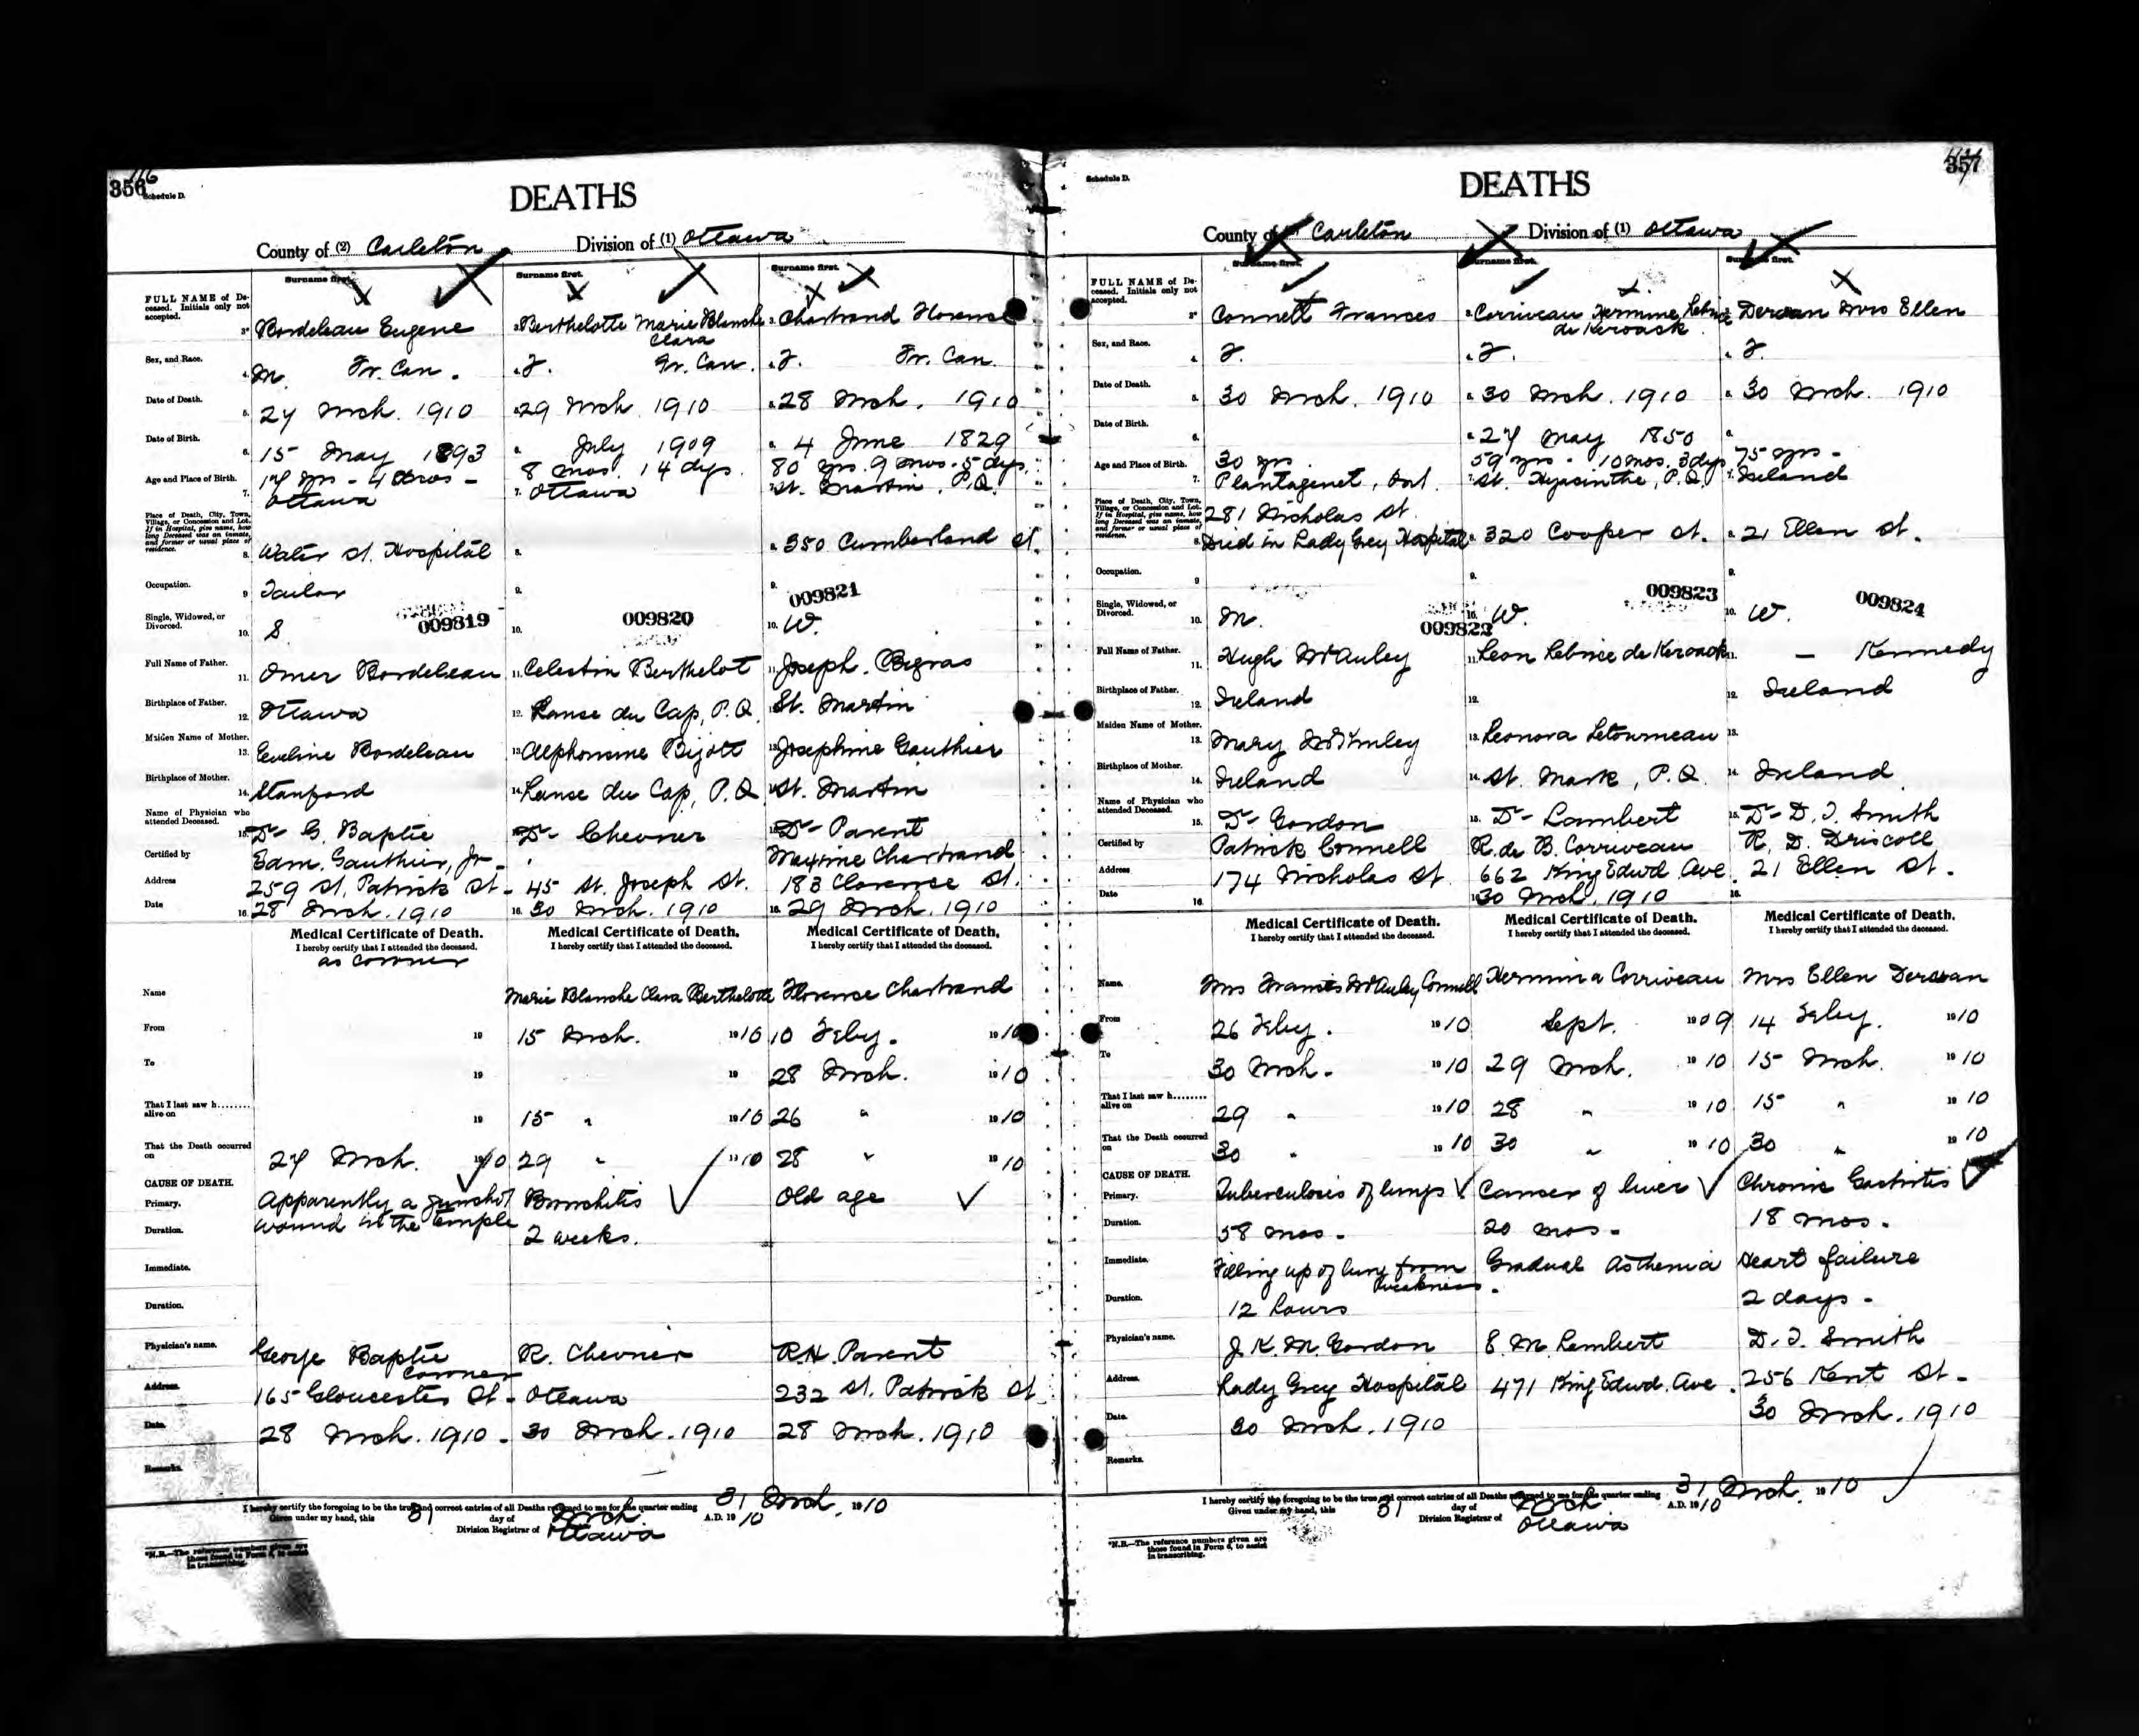 356
116
Schedule D.
DEATHS
County of (2) Carleton Division of (1) Ottawa
Surname first. Surname first. Surname first.
FULL NAME of Deceased. Initials only not accepted.
3* Bordeleau Eugene 3. Berthelotte Marie Blanche Clara 3. Chartrand Florence
Sex, and Race. 4. M. Fr. Can. 4. F. Fr. Can. 4. F. Fr. Can.
Date of Death. 5. 27 Mch. 1910 5. 29 Mch 1910 5. 28 Mch. 1910
Date of Birth. 6. 15 May 1893 6. July 1909 6. 4 June 1829
Age and Place of Birth. 8 mos. 14 dys. 80 yrs. 9 mos. 5 dys.
7. Ottawa 7. Ottawa 7. St. Martin, P.Q.
Place of Death, City, Town, Village, or Concession and Lot. If in Hospital, give name, how long Deceased was an inmate, and former or usual place of residence.
8. Water St. Hospital 8. 8. 350 Cumberland st.
Occupation. 9 Tailor 9. 9.
009819 009820 009821
Single, Widowed, or Divorced. 10. S. 10. 10. W.
Full Name of Father. 11. Omer Bordeleau 11. Celestin Berthelot 11. Joseph Bigras
Birthplace of Father. 12. Ottawa 12. Lanse du Cap, P.Q. St. Martin
Maiden Name of Mother. 13. Eveline Bordeleau 13. Alphonsine Bijott 13. Josephine Gauthier
Birthplace of Mother. 14. Stanford 14. Lanse du Cap, P.Q. 14. St. Martin
Name of Physician who attended Deceased. 15. Dr G. Baptie Dr Chevrier Dr Parent
Certified by Sam. Gauthier, Jr Chartrand
Address 259 St. Patrick St. 45 St. Joseph St. 183 Clarence St.
Date 16. 28 Mch. 1910 16. 30 Mch. 1910 16. 29 Mch. 1910
Medical Certificate of Death. Medical Certificate of Death. Medical Certificate of Death.
I hereby certify that I attended the deceased. I hereby certify that I attended the deceased. I hereby certify that I attended the deceased.
as coroner
Name Marie Blanche Clara Berthelotte Florence Chartrand
From 19 15 Mch. 1910 10 Feby. 1910
To 19 19 28 Mch. 1910
That I last saw h........ alive on 19 15 " 1910 26 " 1910
That the Death occurred on 27 Mch. 1910 29 " 1910 28 " 1910
CAUSE OF DEATH.
Primary. Apparently a gunshot wound in the temple Bronchitis Old age
Duration. 2 weeks.
Immediate.
Duration.
Physician's name. George Baptie Coroner R. Chevrier R.H. Parent
Address. 165 Gloucester St. Ottawa 232 St. Patrick St
Date. 28 Mch. 1910. 30 Mch. 1910 28 Mch. 1910
Remarks.
I hereby certify the foregoing to be the true and correct entries of all Deaths returned to me for the quarter ending 31 Mch. 1910
Given under my hand, this 31 day of Mch A.D. 1910
Division Registrar of Ottawa
*N.B.—The reference numbers given are those found in Form 6, to assist in transcribing.
357
Schedule D.
DEATHS
County of Carleton Division of (1) Ottawa
Surname first. Surname first. Surname first.
FULL NAME of Deceased. Initials only not accepted.
3* Connell Frances 3. Corriveau Hermine Lebrice de Keroack 3. Mrs Ellen
Sex, and Race. 4. F. 4. F. 4. F.
Date of Death. 5. 30 Mch. 1910 5. 30 Mch. 1910 5. 30 Mch. 1910
Date of Birth. 6. 6. 27 May 1850 6.
Age and Place of Birth. 30 yrs. 59 yrs. 10 mos. 3 dys 75 yrs.
7. Plantagenet, Ont. 7. St. Hyacinthe, P.Q. 7. Ireland
Place of Death, City, Town, Village, or Concession and Lot. If in Hospital, give name, how long Deceased was an inmate, and former or usual place of residence.
281 Nicholas St.
8. Died in Lady Grey Hospital 8. 320 Cooper st. 8. 21 Ellen st.
Occupation. 9 9. 9.
009822 009823 009824
Single, Widowed, or Divorced. 10. M. 10. W. 10. W.
Full Name of Father. 11. Hugh McAuley 11. Leon Lebrice de Keroack 11. — Kennedy
Birthplace of Father. 12. Ireland 12. 12. Ireland
Maiden Name of Mother. 13. Mary 13. Leonora Letourneau 13.
Birthplace of Mother. 14. Ireland 14. St. Mark, P.Q. 14. Ireland
Name of Physician who attended Deceased. 15. Dr Gordon 15. Dr Lambert 15. Dr D. T. Smith
Certified by Patrick Connell R. de B. Corriveau R. D. Driscoll
Address 174 Nicholas St 662 King Edwd Ave. 21 Ellen St.
Date 16. 30 Mch. 1910 16.
Medical Certificate of Death. Medical Certificate of Death. Medical Certificate of Death.
I hereby certify that I attended the deceased. I hereby certify that I attended the deceased. I hereby certify that I attended the deceased.
Name. Mrs Frances McAuley Connell Hermina Corriveau Mrs Ellen
From 26 Feby. 1910 Sept. 1909 14 Feby. 1910
To 30 Mch. 1910 29 Mch. 1910 15 Mch. 1910
That I last saw h........ alive on 29 " 1910 28 " 1910 15 " 1910
That the Death occurred on 30 " 1910 30 " 1910 30 " 1910
CAUSE OF DEATH.
Primary. Tuberculosis of lungs Cancer of liver Chronic Gastritis
Duration. 58 mos. 20 mos. 18 mos.
Immediate. Filling up of lung from weakness Gradual Asthenia Heart failure
Duration. 12 hours 2 days.
Physician's name. J. K. M. Gordon E. M. Lambert D. T. Smith
Address. Lady Grey Hospital 471 King Edwd. Ave. 256 Kent St.
Date. 30 Mch. 1910 30 Mch. 1910
Remarks.
I hereby certify the foregoing to be the true and correct entries of all Deaths returned to me for the quarter ending 31 Mch. 1910
Given under my hand, this 31 day of Mch A.D. 1910
Division Registrar of Ottawa
*N.B.—The reference numbers given are those found in Form 6, to assist in transcribing.